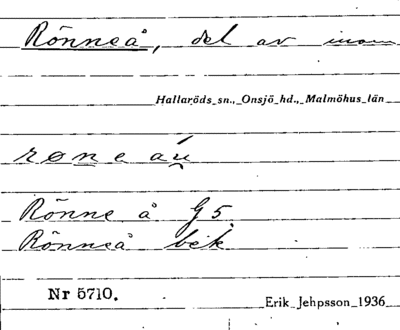 Rönneå, del av inom
Hallaröds sn., Onsjö hd., Malmöhus län
Rönne å G5
Rönneå bek
Nr 5710.
Erik Jehpsson 1936